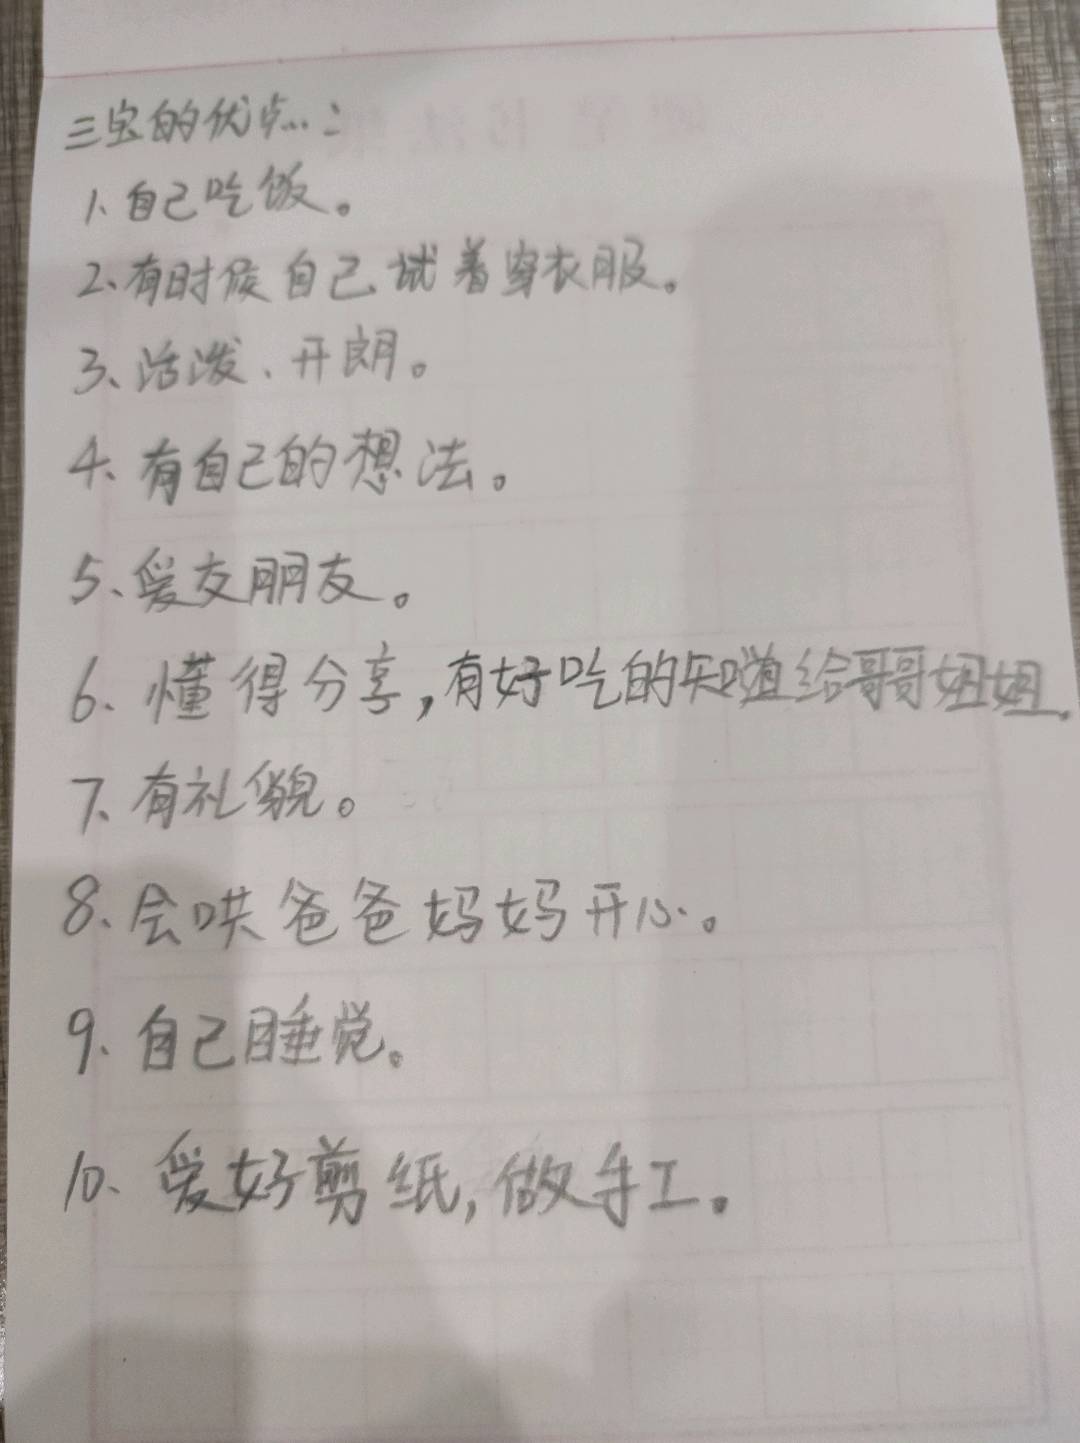 三宝的优点：
1、自己吃饭。
2、有时候自己试着穿衣服。
3、活泼、开朗。
4、有自己的想法。
5、爱交朋友。
6、懂得分享，有好吃的知道给哥哥姐姐。
7、有礼貌。
8、会哄爸爸妈妈开心。
9、自己睡觉。
10、爱好剪纸，做手工。